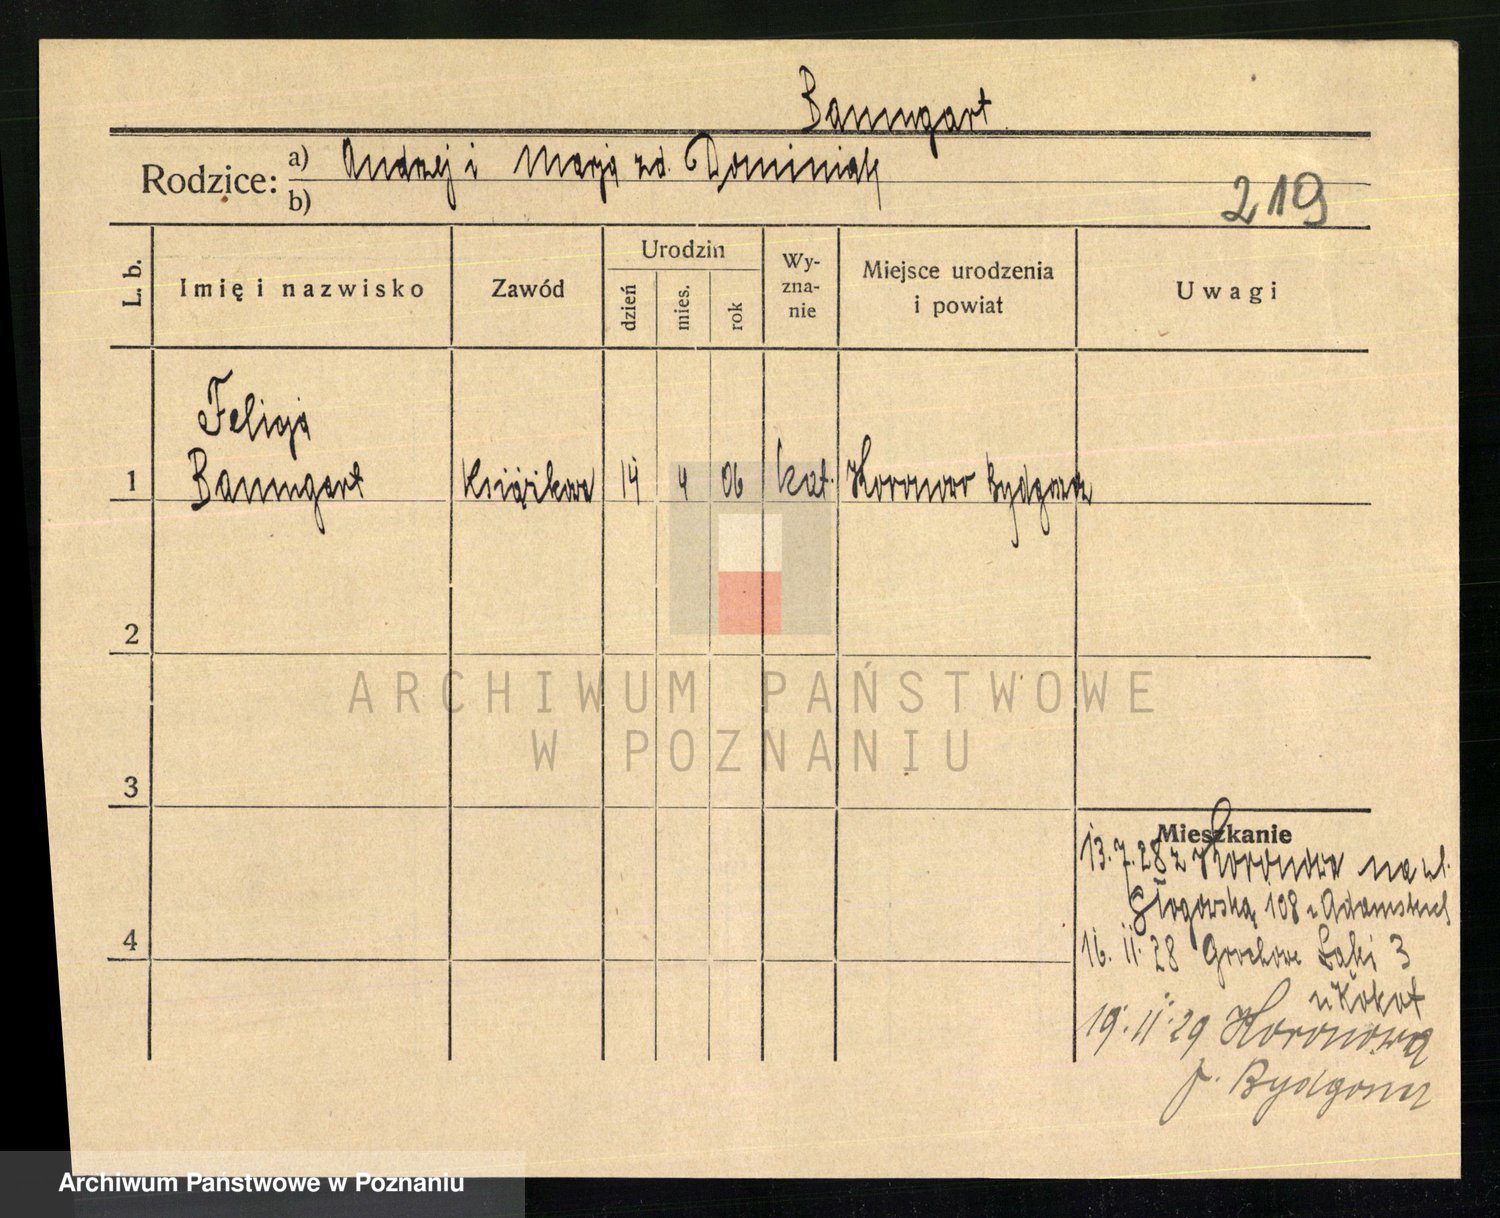 Baumgart
Rodzice: a) Andrzej i Marja zd. Dominiak
b)
219
L. b.
Imię i nazwisko
Zawód
Urodzin
dzień
mies.
rok
Wy-
zna-
nie
Miejsce urodzenia
i powiat
Uwagi
Felicja
1 Baumgart 14 4 06 kat. Koronowo Bydgoszcz
2
ARCHIWUM PAŃSTWOWE
W POZNANIU
3
Mieszkanie
13.7.28 z Koronowa na ul.
Głogowską 108 u Adamskich
4
16.11.28 Grochowe Łąki 3
u Kokot
19.11.29 Koronowo
p. Bydgoszcz
Archiwum Państwowe w Poznaniu